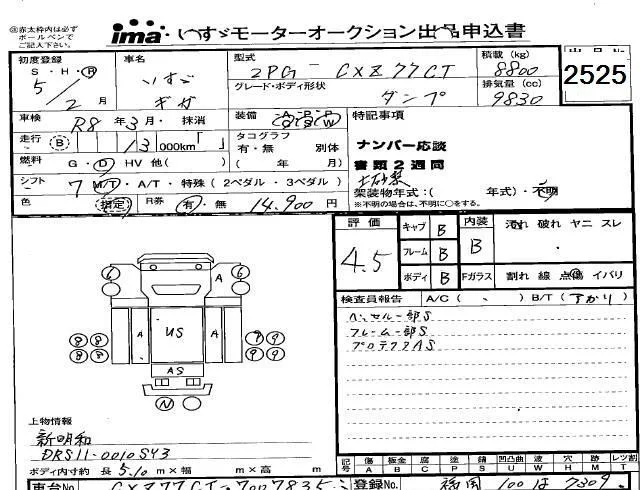 ※赤太枠内は必ずボールペンでご記入下さい。
ima いすゞモーターオークション出品申込書
初度登録 S・H・R 5/2月
車名 いすゞ ギガ
型式 2PG- CXZ77CT
積載 (kg) 8800
出品No
2525
グレード・ボディ形状 ダンプ
排気量 (cc) 9830
車検 R8年3月・抹消
装備 A・P・P A・S・W
特記事項
走行 B 13 000km「 」
タコグラフ 有・無 別体 ( 年 月)
ナンバー応談
書類2週間
土砂禁
燃料 G・D HV 他( )
シフト 7 M/T・A/T・特殊(2ペダル・3ペダル)
架装物年式:( 年式)・不明
※不明の場合は、不明に○をする。
色 指定 R券 有・無 14,900円
評価 4.5
キャブ B
フレーム B
ボディ B
内装 B
汚れ 破れ ヤニ スレ
Fガラス 割れ 線 点傷 イバリ
検査員報告 A/C( ) B/T(アカリ)
ベッセル一部S
フレーム一部S
プロテクタAS
6 A 6
A US A
8 8 9 9
8 8 9 9
AS
N
上物情報
新明和
DRS11-0010SY3
ボディ内寸約 長 5.10m×幅 m×高 m
記号 傷A 板金B 腐C 塗P 錆S 凹凸曲U 波W 穴H 跡M レツ割T
車台No. CXZ77CT-7007835
登録No. 福岡 100は7309